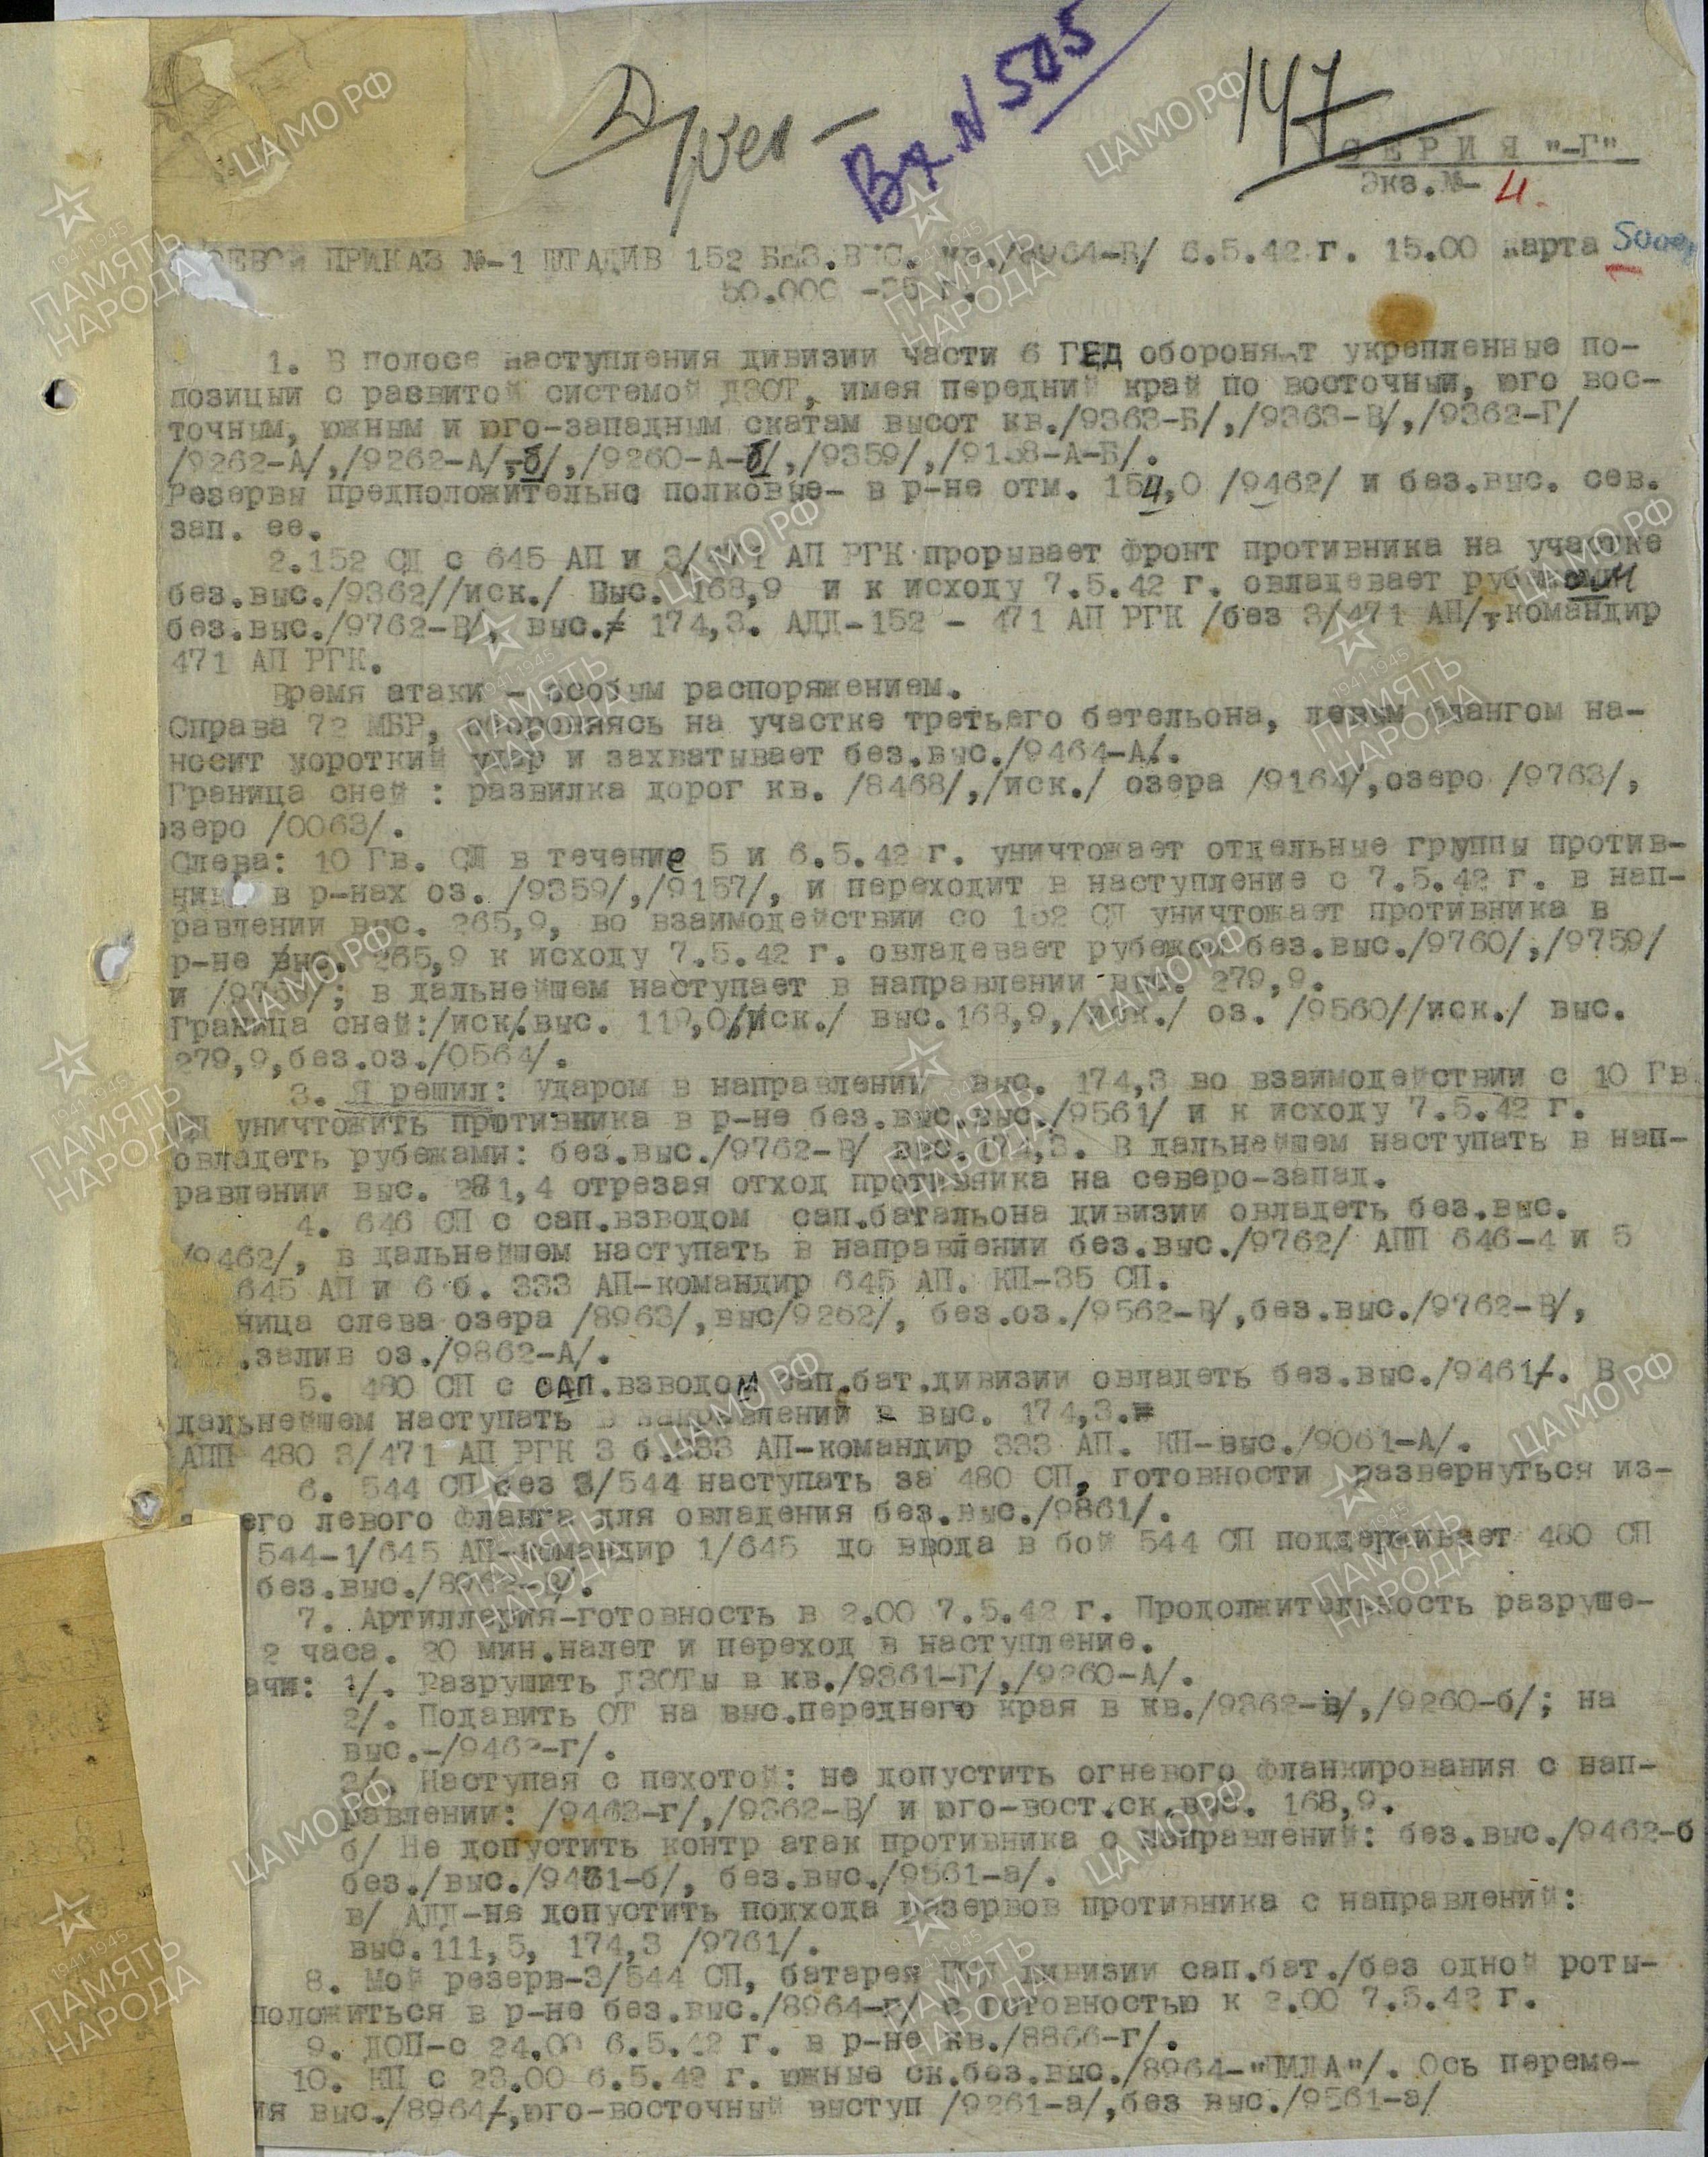 147
Вх N 505
СЕРИЯ "-Г"
Экз.№- 4.
БОЕВОЙ ПРИКАЗ №-1 ШТАДИВ 152 БЕЗ.ВЫС. кв./8964-В/ 6.5.42 г. 15.00 карта
50.000 -36 г.
1. В полосе наступления дивизии части 6 ГЕД обороняют укрепленные по-
позиции с развитой системой ДЗОТ, имея передний край по восточным, юго вос-
точным, южным и юго-западным скатам высот кв./9363-Б/,/9363-В/,/9362-Г/
/9262-А/,/9262-А/,-б/,/9260-А-б/,/9359/,/9158-А-Б/.
Резервы предположительно полковые- в р-не отм. 154,0 /9462/ и без.выс. сев.
зап. ее.
2.152 СД с 645 АП и 3/471 АП РГК прорывает фронт противника на участке
без.выс./9362//иск./ Выс. 168,9 и к исходу 7.5.42 г. овладевает рубежом
без.выс./9762-В/, выс. 174,3. АДД-152 - 471 АП РГК /без 3/471 АП/,-командир
471 АП РГК.
Время атаки - особым распоряжением.
Справа 72 МБР, обороняясь на участке третьего бетельона, левым флангом на-
носит короткий удар и захватывает без.выс./9464-А/.
Граница сней : развилка дорог кв. /8468/,/иск./ озера /9164/,озеро /9763/,
озеро /0063/.
Слева: 10 Гв. СД в течение 5 и 6.5.42 г. уничтожает отдельные группы против-
ника в р-нах оз. /9359/,/9157/, и переходит в наступление с 7.5.42 г. в нап-
равлении выс. 265,9, во взаимодействии со 152 СД уничтожает противника в
р-не выс. 265,9 к исходу 7.5.42 г. овладевает рубежом без.выс./9760/,/9759/
и /9757/; в дальнейшем наступает в направлении выс. 279,9.
Граница сней:/иск/.выс. 119,0/иск./ выс.168,9,/иск./ оз. /9560//иск./ выс.
279,9,без.оз./0564/.
3. Я решил: ударом в направлении выс. 174,3 во взаимодействии с 10 Гв.
СД уничтожить противника в р-не без.выс.выс./9561/ и к исходу 7.5.42 г.
овладеть рубежами: без.выс./9762-В/ выс.174,3. В дальнейшем наступать в нап-
равлении выс. 281,4 отрезая отход противника на северо-запад.
4. 646 СП с сап.взводом сап.батальона дивизии овладеть без.выс.
/9462/, в дальнейшем наступать в направлении без.выс./9762/ АПП 646-4 и 5
645 АП и 6 б. 333 АП-командир 645 АП. КП-35 СП.
ница слева озера /8963/,выс/9262/, без.оз./9562-В/,без.выс./9762-В/,
.залив оз./9862-А/.
5. 480 СП с сап.взводом сап.бат.дивизии овладеть без.выс./9461/. В
дальнейшем наступать в направлении в выс. 174,3.
АПП 480 3/471 АП РГК 3 б.333 АП-командир 333 АП. КП-выс./9061-А/.
6. 544 СП без 3/544 наступать за 480 СП, готовности развернуться из-
его левого фланга для овладения без.выс./9861/.
544-1/645 АП-командир 1/645 до ввода в бой 544 СП поддерживает 480 СП
без.выс./8962-В/.
7. Артиллерия-готовность в 2.00 7.5.42 г. Продолжительность разруше-
2 часа. 20 мин.налет и переход в наступление.
ачи: 1/. Разрушить ДЗОТы в кв./9361-Г/,/9260-А/.
2/. Подавить ОТ на выс.переднего края в кв./9362-в/,/9260-б/; на
выс.-/9462-г/.
2/. Наступая с пехотой: не допустить огневого фланкирования с нап-
равлении: /9463-г/,/9362-В/ и юго-вост.ск.выс. 168,9.
б/ Не допустить контр атак противника с направлений: без.выс./9462-б
без./выс./9461-б/, без.выс./9561-а/.
в/ АДД-не допустить подхода резервов противника с направлений:
выс.111,5, 174,3 /9761/.
8. Мой резерв-3/544 СП, батарея ПТО дивизии сап.бат./без одной роты-
положиться в р-не без.выс./8964-г/ с готовностью к 2.00 7.5.42 г.
9. ДОП-с 24.00 6.5.42 г. в р-не кв./8866-г/.
10. КП с 23.00 6.5.42 г. южные ск.без.выс./8964-"ПИЛА"/. Ось переме-
ия выс./8964/,юго-восточный выступ /9261-а/,без выс./9561-а/